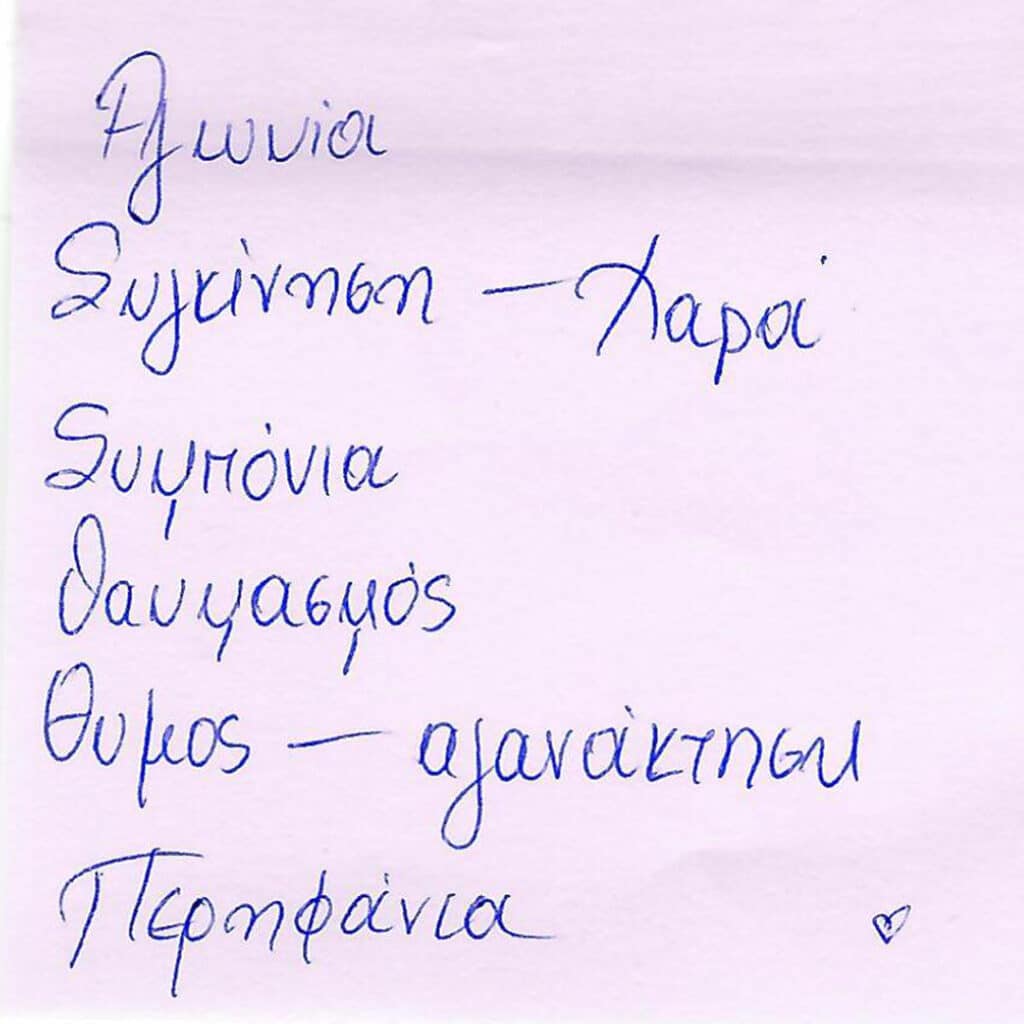 Αγωνία
Συγκίνηση – Χαρά
Συμπόνια
θαυμασμός
Θυμος – αγανάκτηση
Περηφάνια